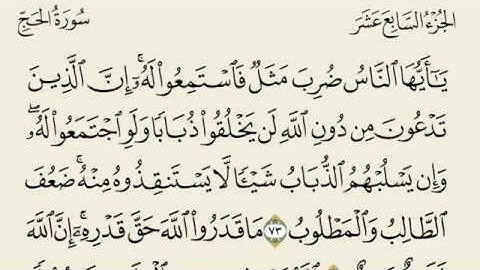 الجُزْءُ السَّابِعَ عَشَرَ
سُورَةُ الحَجِّ
يَـٰٓأَيُّهَا ٱلنَّاسُ ضُرِبَ مَثَلٌ فَٱسْتَمِعُوا۟ لَهُۥٓ ۚ إِنَّ ٱلَّذِينَ
تَدْعُونَ مِن دُونِ ٱللَّهِ لَن يَخْلُقُوا۟ ذُبَابًا وَلَوِ ٱجْتَمَعُوا۟ لَهُۥ ۖ
وَإِن يَسْلُبْهُمُ ٱلذُّبَابُ شَيْـًٔا لَّا يَسْتَنقِذُوهُ مِنْهُ ۚ ضَعُفَ
ٱلطَّالِبُ وَٱلْمَطْلُوبُ ۝٧٣ مَا قَدَرُوا۟ ٱللَّهَ حَقَّ قَدْرِهِۦٓ ۚ إِنَّ ٱللَّهَ